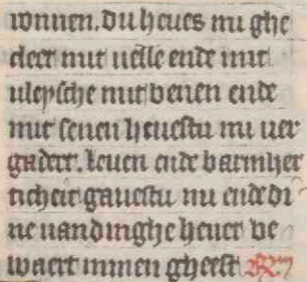 ronnen. Du heues mi ghe
cleet mit uelle ende mit
uleysche mit benen ende
mit senen heuestu mi uer
gadert. leuen ende barmher
ticheit gauestu mi ende di
ne uandinghe heuet be
waert minen gheest